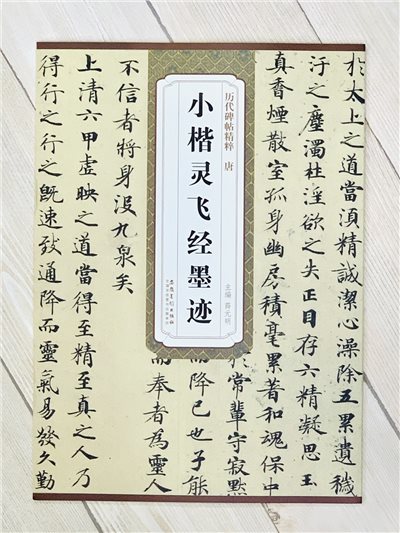 於太上之道當湏精誠潔心澡除五累遺穢
汙之塵濁杜淫欲之失正目存六精凝思玉
真香煙散室孤身幽房積毫累著和魂保中
於常輩守寂默
而降已也子能
而奉者為靈人
历代碑帖精粹 唐
小楷灵飞经墨迹
主编 薛元明
安徽美術出版社
不信者將身没九泉矣
上清六甲虛映之道當得至精至真之人乃
得行之行之既速致通降而靈氣易發久勤